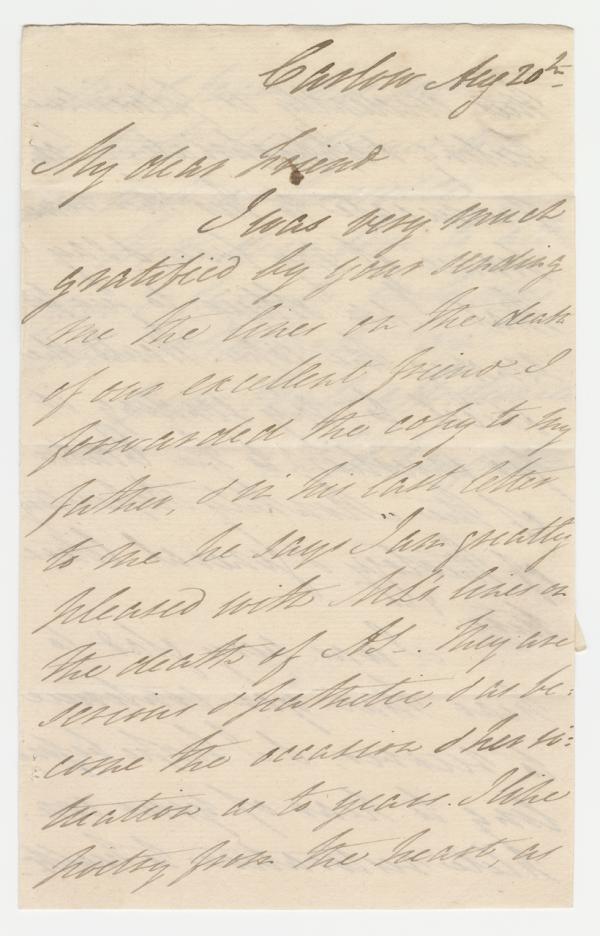 Carlow Aug 20th
My dear Friend
I was very much
gratified by your sending
me the lines on the death
of our excellent friend I
forwarded the copy to my
father, & in his last letter
to me he says "I am greatly
pleased with ML's lines on
the death of AS-. They are
serious & pathetic, & as be:
come the occasion & her si:
tuation as to years. I like
poetry from the heart, as